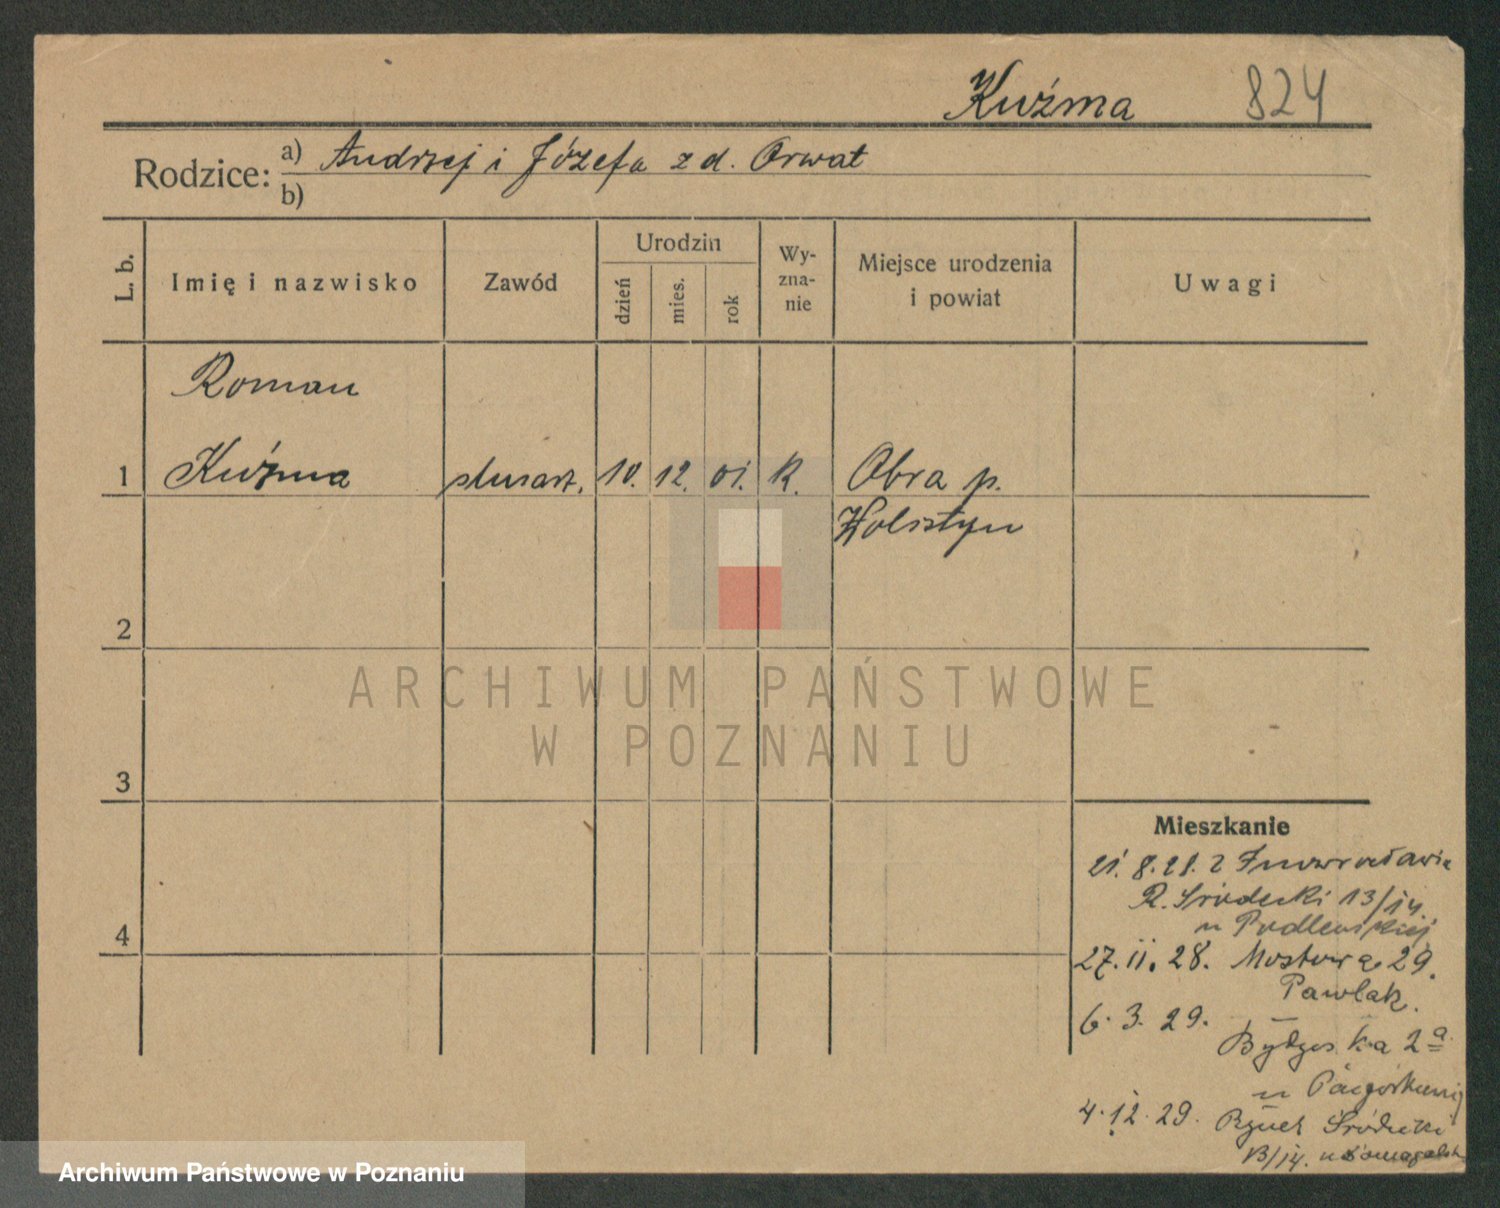 Kuźma 824
Rodzice: a) Andrzej i Józefa z d. Orwat
b)
L. b.
Imię i nazwisko
Zawód
Urodzin
dzień
mies.
rok
Wy-
zna-
nie
Miejsce urodzenia
i powiat
Uwagi
Roman
1 Kuźma ślusarz. 10. 12. 01. K. Obra p.
Wolsztyn
2
ARCHIWUM PAŃSTWOWE
W POZNANIU
3
Mieszkanie
21. 8. 28. z Inowrocławia
R. Śródecki 13/14.
4
27. 11. 28. Mostowa 29.
Pawlak.
6. 3. 29.
Bydgoska 2a
4. 12. 29. Rynek Śródecki
13/14. u
Archiwum Państwowe w Poznaniu